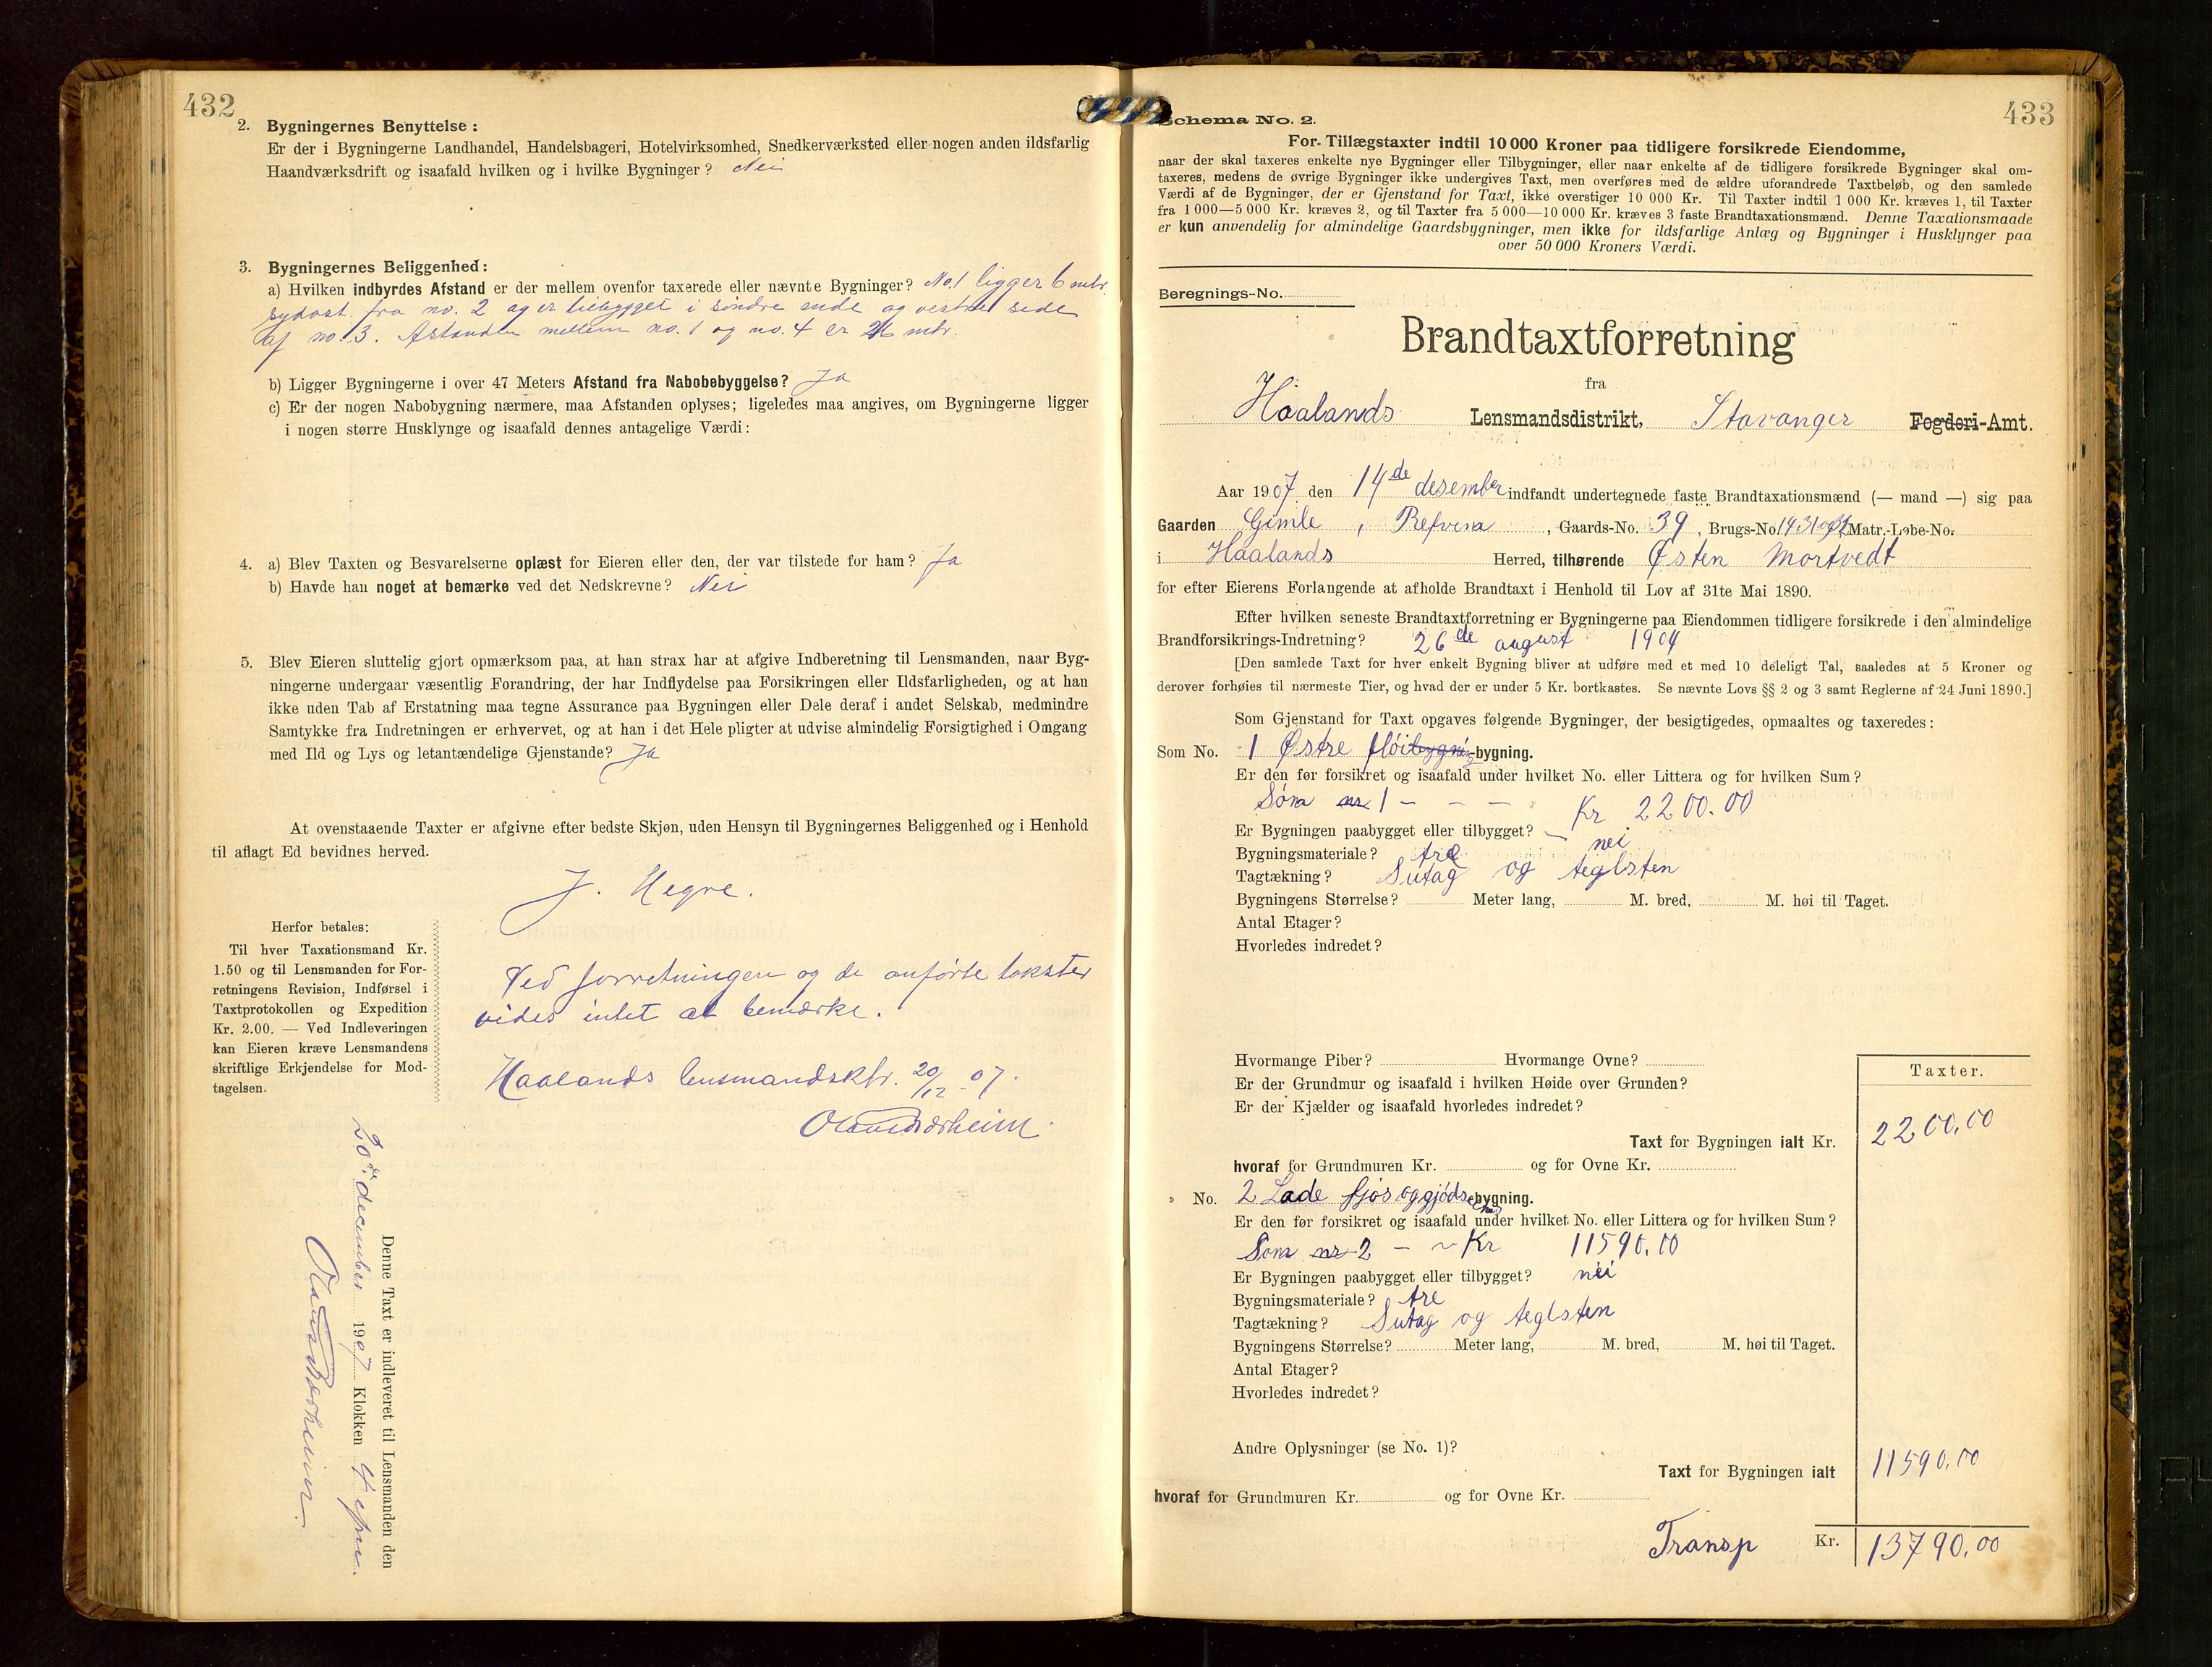 432
2. Bygningernes Benyttelse:
Er der i Bygningerne Landhandel, Handelsbageri, Hotelvirksomhed, Snedkerværksted eller nogen anden ildsfarlig
Haandværksdrift og isaafald hvilken og i hvilke Bygninger? Nei
3. Bygningernes Beliggenhed:
a) Hvilken indbyrdes Afstand er der mellem ovenfor taxerede eller nævnte Bygninger? No. 1 ligger 6 mtr.
sydøst fra no. 2 og er tilbygget i søndre ende og vestre side
af no. 3. Afstanden mellem no. 1 og no. 4 er 26 mtr.
b) Ligger Bygningerne i over 47 Meters Afstand fra Nabobebyggelse? Ja
c) Er der nogen Nabobygning nærmere, maa Afstanden oplyses; ligeledes maa angives, om Bygningerne ligger
i nogen større Husklynge og isaafald dennes antagelige Værdi:
4. a) Blev Taxten og Besvarelserne oplæst for Eieren eller den, der var tilstede for ham? Ja
b) Havde han noget at bemærke ved det Nedskrevne? Nei
5. Blev Eieren sluttelig gjort opmærksom paa, at han strax har at afgive Indberetning til Lensmanden, naar Byg-
ningerne undergaar væsentlig Forandring, der har Indflydelse paa Forsikringen eller Ildsfarligheden, og at han
ikke uden Tab af Erstatning maa tegne Assurance paa Bygningen eller Dele deraf i andet Selskab, medmindre
Samtykke fra Indretningen er erhvervet, og at han i det Hele pligter at udvise almindelig Forsigtighed i Omgang
med Ild og Lys og letantændelige Gjenstande? Ja
At ovenstaaende Taxter er afgivne efter bedste Skjøn, uden Hensyn til Bygningernes Beliggenhed og i Henhold
til aflagt Ed bevidnes herved.
J. Hegre.
Herfor betales:
Til hver Taxationsmand Kr.
1.50 og til Lensmanden for For-
retningens Revision, Indførsel i
Taxtprotokollen og Expedition
Kr. 2.00. — Ved Indleveringen
kan Eieren kræve Lensmandens
skriftlige Erkjendelse for Mod-
tagelsen.
Ved forretningen og de anførte takster
vides intet at bemærke.
Haalands lensmandsktr. 20/12 07.
Denne Taxt er indleveret til Lensmanden den
20de december 1907 Klokken 4 efm.
433
Schema No. 2.
For Tillægstaxter indtil 10 000 Kroner paa tidligere forsikrede Eiendomme,
naar der skal taxeres enkelte nye Bygninger eller Tilbygninger, eller naar enkelte af de tidligere forsikrede Bygninger skal om-
taxeres, medens de øvrige Bygninger ikke undergives Taxt, men overføres med de ældre uforandrede Taxtbeløb, og den samlede
Værdi af de Bygninger, der er Gjenstand for Taxt, ikke overstiger 10 000 Kr. Til Taxter indtil 1 000 Kr. kræves 1, til Taxter
fra 1 000—5 000 Kr. kræves 2, og til Taxter fra 5 000—10 000 Kr. kræves 3 faste Brandtaxationsmænd. Denne Taxationsmaade
er kun anvendelig for almindelige Gaardsbygninger, men ikke for ildsfarlige Anlæg og Bygninger i Husklynger paa
over 50 000 Kroners Værdi.
Beregnings-No.
Brandtaxtforretning
fra
Haalands Lensmandsdistrikt, Stavanger Fogderi-Amt.
Aar 1907 den 14de desember indfandt undertegnede faste Brandtaxationsmænd (— mand —) sig paa
Gaarden Gimle, Refvem, Gaards-No. 39, Brugs-No. Matr.-Løbe-No.
i Haalands Herred, tilhørende Østen Mortvedt
for efter Eierens Forlangende at afholde Brandtaxt i Henhold til Lov af 31te Mai 1890.
Efter hvilken seneste Brandtaxtforretning er Bygningerne paa Eiendommen tidligere forsikrede i den almindelige
Brandforsikrings-Indretning? 26de august 1904
[Den samlede Taxt for hver enkelt Bygning bliver at udføre med et med 10 deleligt Tal, saaledes at 5 Kroner og
derover forhøies til nærmeste Tier, og hvad der er under 5 Kr. bortkastes. Se nævnte Lovs §§ 2 og 3 samt Reglerne af 24 Juni 1890.]
Som Gjenstand for Taxt opgaves følgende Bygninger, der besigtigedes, opmaaltes og taxeredes:
Som No. 1 Østre fløibygni-bygning.
Er den før forsikret og isaafald under hvilket No. eller Littera og for hvilken Sum?
Som nr 1 - - - Kr 2200.00
Er Bygningen paabygget eller tilbygget? - nei
Bygningsmateriale? træ
Tagtækning? Sutag og teglsten
Bygningens Størrelse? Meter lang, M. bred, M. høi til Taget.
Antal Etager?
Hvorledes indredet?
Hvormange Piber? Hvormange Ovne?
Er der Grundmur og isaafald i hvilken Høide over Grunden?
Er der Kjælder og isaafald hvorledes indredet?
Taxter.
Taxt for Bygningen ialt Kr. 2200.00
hvoraf for Grundmuren Kr. og for Ovne Kr.
» No. 2 Lade fjøs og gjøds-bygning.
Er den før forsikret og isaafald under hvilket No. eller Littera og for hvilken Sum?
Som nr 2 - - Kr 11590.00
Er Bygningen paabygget eller tilbygget? nei
Bygningsmateriale? tre
Tagtækning? Sutag og teglsten
Bygningens Størrelse? Meter lang, M. bred, M. høi til Taget.
Antal Etager?
Hvorledes indredet?
Andre Oplysninger (se No. 1)?
Taxt for Bygningen ialt 11590.00
hvoraf for Grundmuren Kr. og for Ovne Kr.
Transp Kr. 13790.00